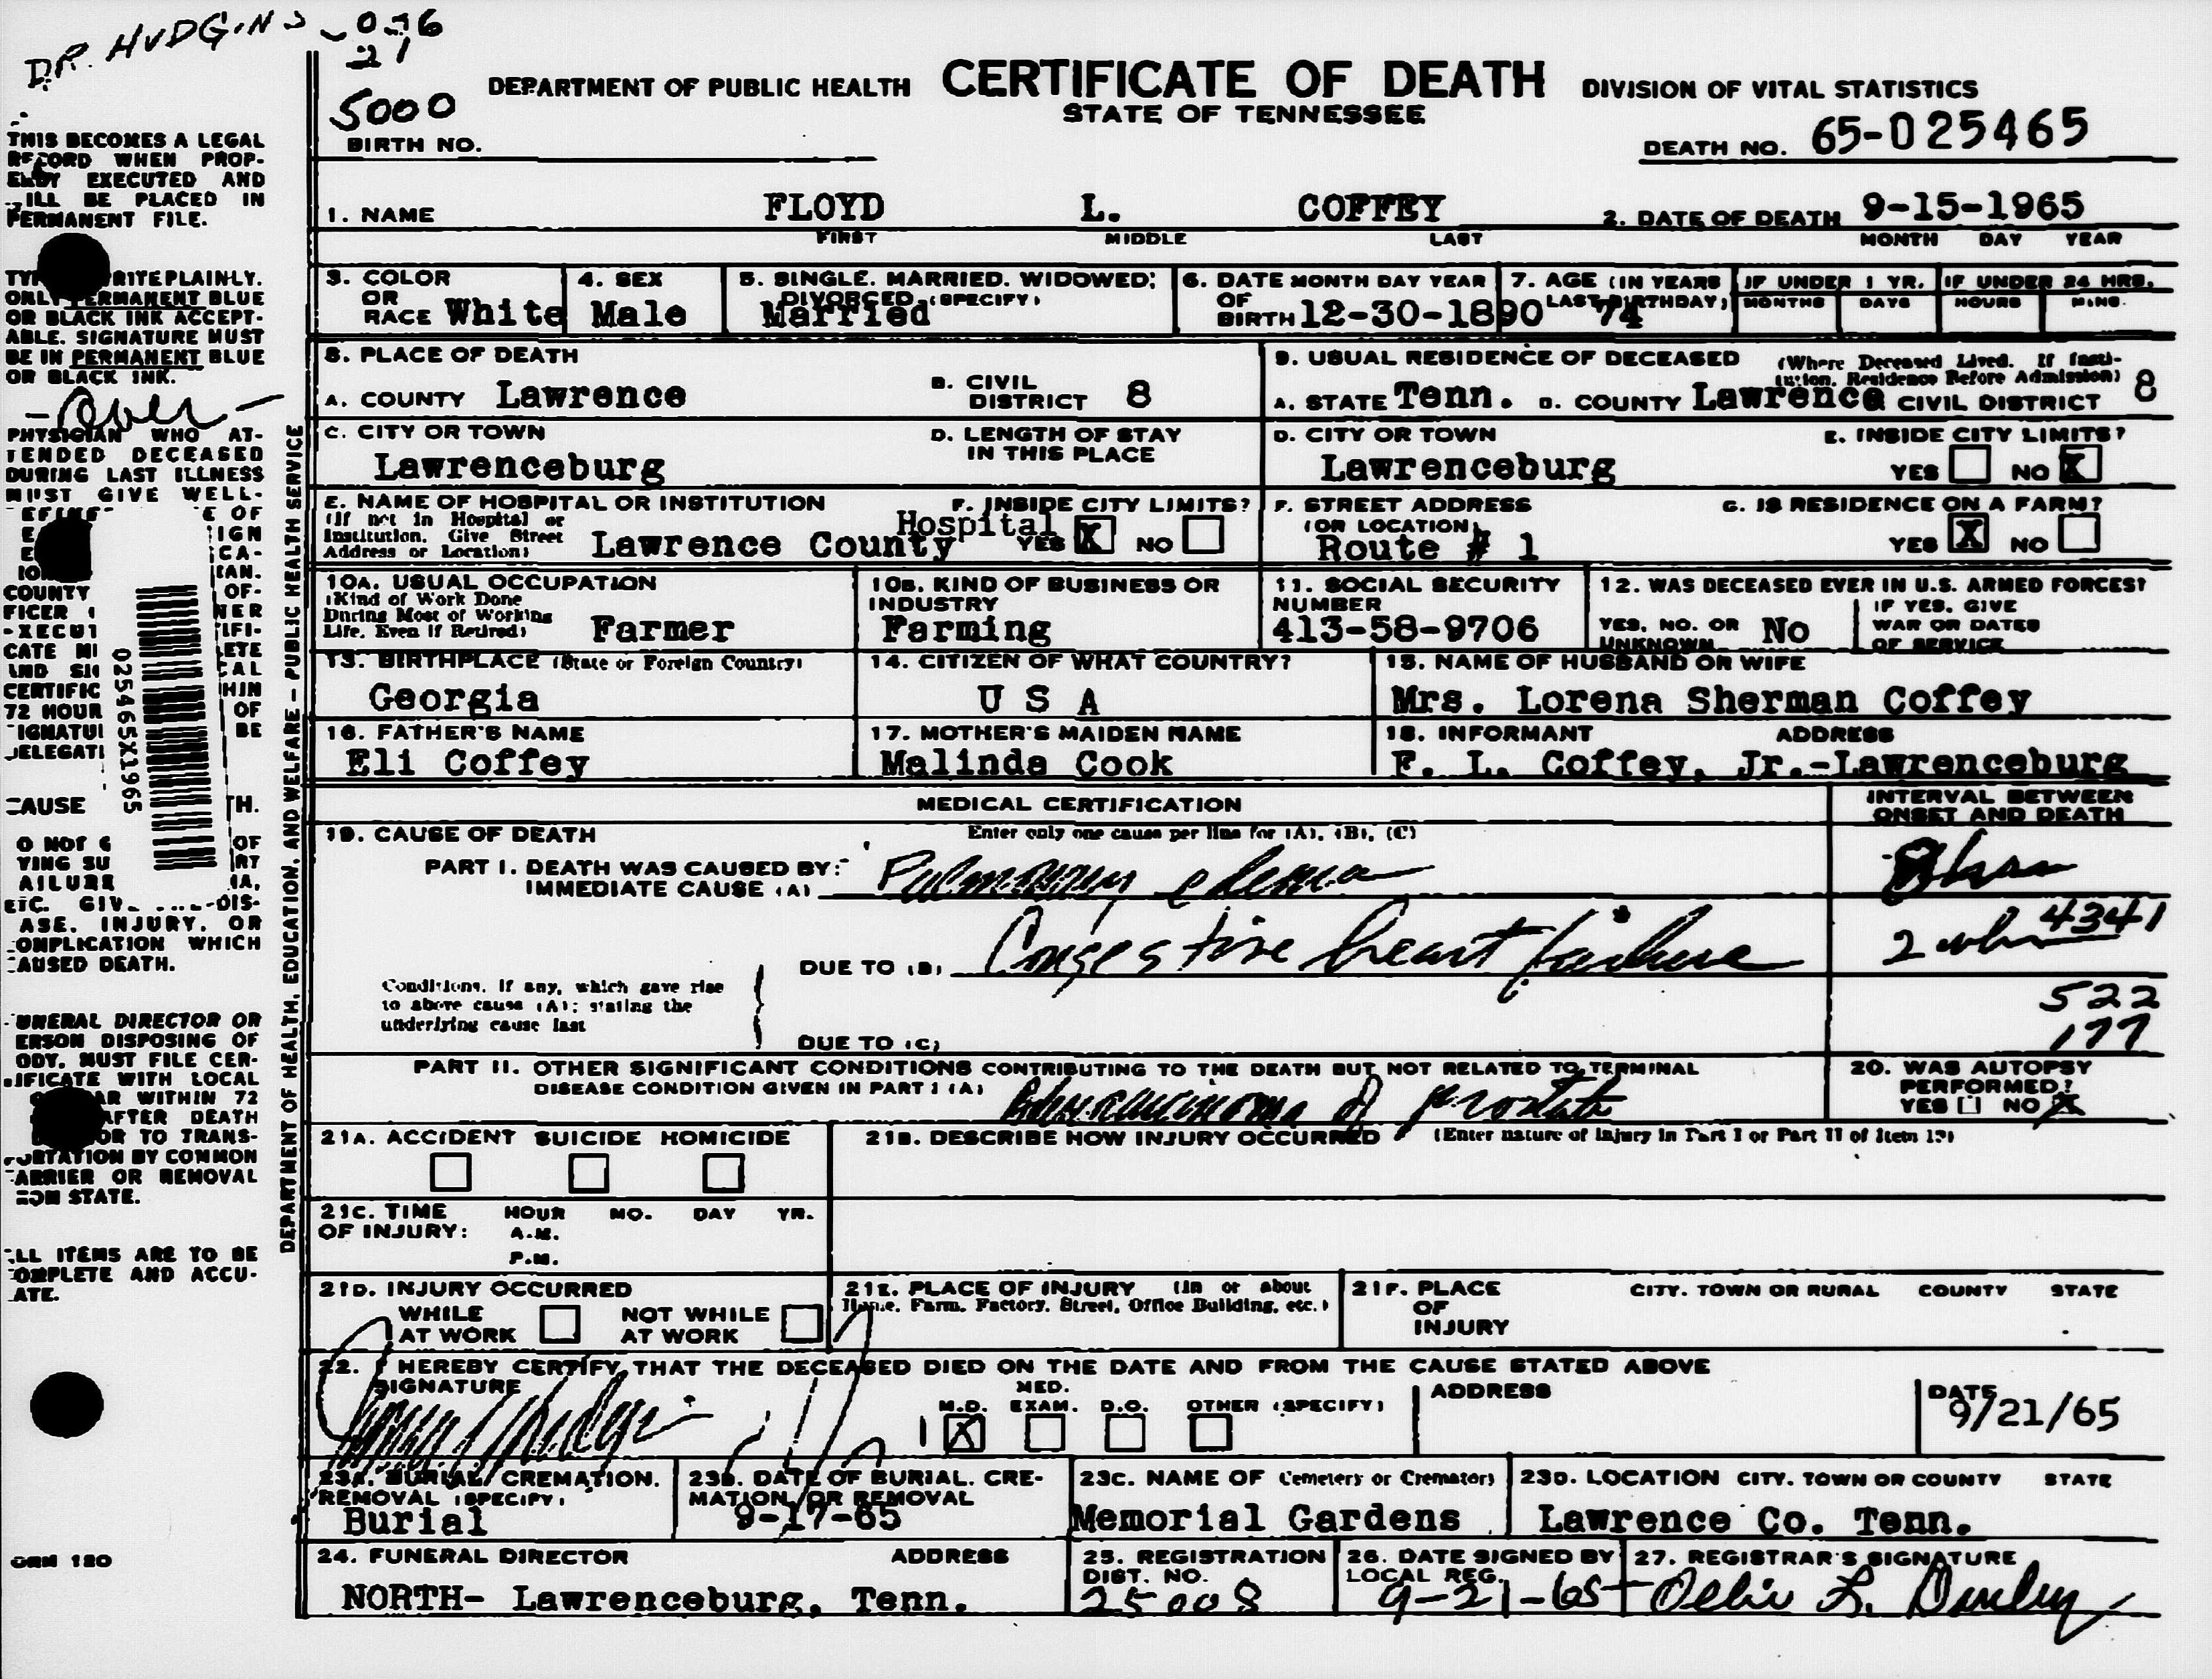 DR. HUDGINS
21
5000
DEPARTMENT OF PUBLIC HEALTH CERTIFICATE OF DEATH DIVISION OF VITAL STATISTICS
STATE OF TENNESSEE
BIRTH NO.
DEATH NO. 65-025465
1. NAME FLOYD L. COFFEY 2. DATE OF DEATH 9-15-1965
FIRST MIDDLE LAST MONTH DAY YEAR
3. COLOR OR RACE White
4. SEX Male
5. SINGLE, MARRIED, WIDOWED, DIVORCED (SPECIFY) Married
6. DATE OF BIRTH MONTH DAY YEAR 12-30-1890
7. AGE (IN YEARS LAST BIRTHDAY) 74
IF UNDER 1 YR. MONTHS DAYS
IF UNDER 24 HRS. HOURS MINS.
8. PLACE OF DEATH
A. COUNTY Lawrence
B. CIVIL DISTRICT 8
9. USUAL RESIDENCE OF DECEASED (Where Deceased Lived. If Institution, Residence Before Admission)
A. STATE Tenn. B. COUNTY Lawrence CIVIL DISTRICT 8
C. CITY OR TOWN
Lawrenceburg
D. LENGTH OF STAY
IN THIS PLACE
D. CITY OR TOWN
Lawrenceburg
E. INSIDE CITY LIMITS?
YES NO X
E. NAME OF HOSPITAL OR INSTITUTION
(If not in Hospital or
Institution, Give Street
Address or Location)
Lawrence County Hospital
F. INSIDE CITY LIMITS?
YES X NO
F. STREET ADDRESS
(OR LOCATION)
Route # 1
G. IS RESIDENCE ON A FARM?
YES X NO
10A. USUAL OCCUPATION
(Kind of Work Done
During Most of Working
Life, Even if Retired)
Farmer
10B. KIND OF BUSINESS OR
INDUSTRY
Farming
11. SOCIAL SECURITY
NUMBER
413-58-9706
12. WAS DECEASED EVER IN U.S. ARMED FORCES?
YES, NO, OR UNKNOWN No
IF YES, GIVE
WAR OR DATES
OF SERVICE
13. BIRTHPLACE (State or Foreign Country)
Georgia
14. CITIZEN OF WHAT COUNTRY?
U S A
15. NAME OF HUSBAND OR WIFE
Mrs. Lorena Sherman Coffey
16. FATHER'S NAME
Eli Coffey
17. MOTHER'S MAIDEN NAME
Malinda Cook
18. INFORMANT ADDRESS
F. L. Coffey, Jr.-Lawrenceburg
MEDICAL CERTIFICATION
INTERVAL BETWEEN
ONSET AND DEATH
19. CAUSE OF DEATH Enter only one cause per line for (A), (B), (C)
PART I. DEATH WAS CAUSED BY:
IMMEDIATE CAUSE (A) Pulmonary edema
DUE TO (B) Congestive heart failure 2 4341
Conditions, if any, which gave rise
to above cause (A); stating the
underlying cause last
522
177
DUE TO (C)
PART II. OTHER SIGNIFICANT CONDITIONS CONTRIBUTING TO THE DEATH BUT NOT RELATED TO TERMINAL
DISEASE CONDITION GIVEN IN PART I (A) carcinoma of prostate
20. WAS AUTOPSY
PERFORMED?
YES NO X
21A. ACCIDENT SUICIDE HOMICIDE
21B. DESCRIBE HOW INJURY OCCURRED (Enter nature of injury in Part I or Part II of Item 19)
21C. TIME HOUR MO. DAY YR.
OF INJURY: A.M.
P.M.
21D. INJURY OCCURRED
WHILE AT WORK NOT WHILE AT WORK
21E. PLACE OF INJURY (In or about
Home, Farm, Factory, Street, Office Building, etc.)
21F. PLACE OF INJURY CITY, TOWN OR RURAL COUNTY STATE
22. I HEREBY CERTIFY THAT THE DECEASED DIED ON THE DATE AND FROM THE CAUSE STATED ABOVE
SIGNATURE
M.D. X MED. EXAM. D.O. OTHER (SPECIFY)
ADDRESS
DATE 9/21/65
23A. BURIAL, CREMATION,
REMOVAL (SPECIFY)
Burial
23B. DATE OF BURIAL, CRE-
MATION, OR REMOVAL
9-17-65
23C. NAME OF Cemetery or Crematory
Memorial Gardens
23D. LOCATION CITY, TOWN OR COUNTY STATE
Lawrence Co. Tenn.
24. FUNERAL DIRECTOR ADDRESS
NORTH- Lawrenceburg, Tenn.
25. REGISTRATION
DIST. NO.
25008
26. DATE SIGNED BY
LOCAL REG.
9-21-65
27. REGISTRAR'S SIGNATURE
Ollie L.
DEPARTMENT OF HEALTH, EDUCATION, AND WELFARE - PUBLIC HEALTH SERVICE
THIS BECOMES A LEGAL
RECORD WHEN PROP-
ERLY EXECUTED AND
WILL BE PLACED IN
PERMANENT FILE.
RITE PLAINLY.
ONLY PERMANENT BLUE
OR BLACK INK ACCEPT-
ABLE. SIGNATURE MUST
BE IN PERMANENT BLUE
OR BLACK INK.
-Over-
PHYSICIAN WHO AT-
TENDED DECEASED
DURING LAST ILLNESS
MUST GIVE WELL-
COUNTY OF-
FICER
72 HOUR OF
025465X1965
CAUSE TH.
ETC. GIV DIS-
ASE, INJURY, OR
OMPLICATION WHICH
CAUSED DEATH.
UNERAL DIRECTOR OR
ERSON DISPOSING OF
ODY, MUST FILE CER-
TIFICATE WITH LOCAL
AR WITHIN 72
AFTER DEATH
OR TO TRANS-
PORTATION BY COMMON
CARRIER OR REMOVAL
FROM STATE.
ALL ITEMS ARE TO BE
COMPLETE AND ACCU-
ATE.
ORM 120